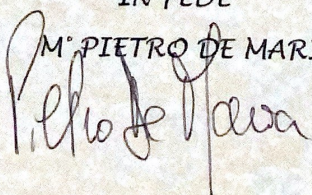 IN FEDE
M° PIETRO DE MARI
Pietro De Maria